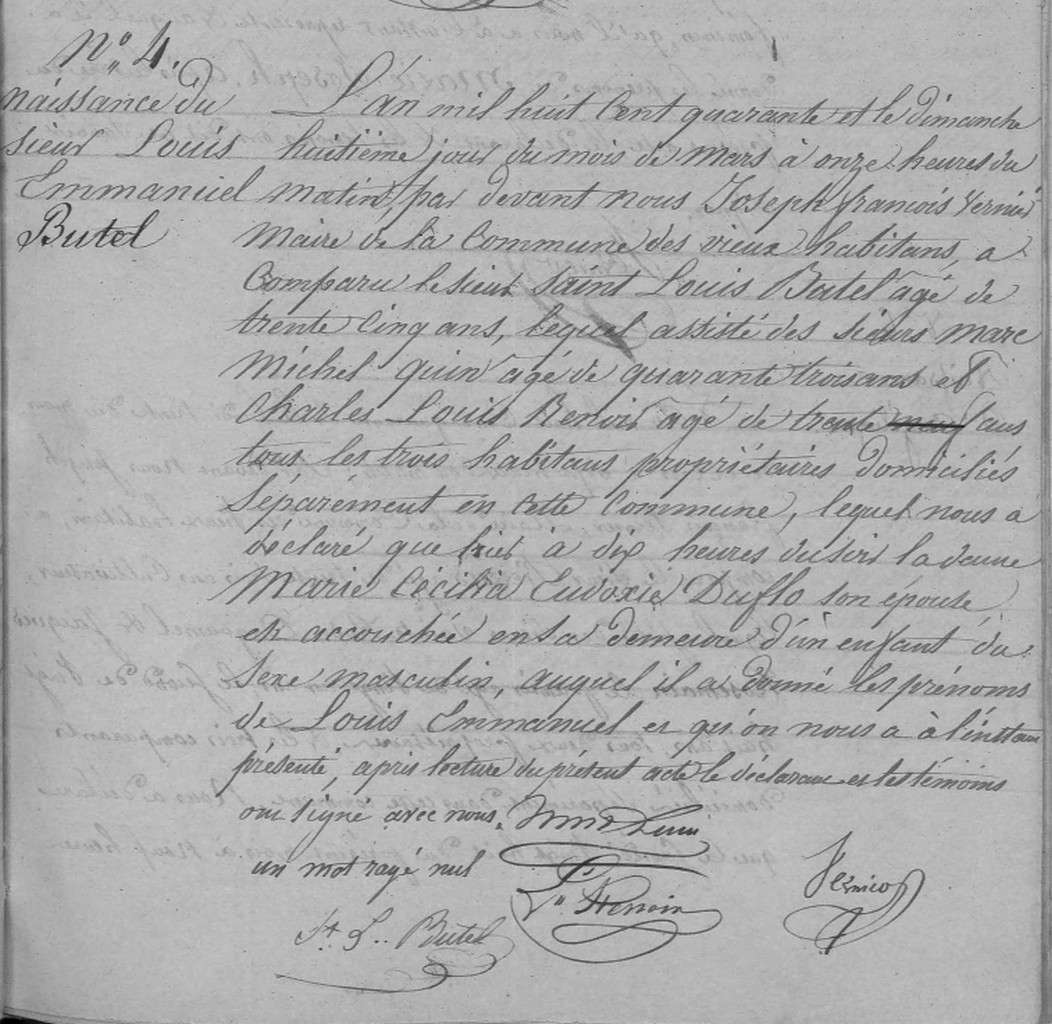 N° 4.
naissance du
sieur Louis
Emmanuel
Butel
L'an mil huit Cent quarante et le dimanche
huitième jour du mois de mars à onze heures du
matin, par devant nous Joseph françois
Maire de la Commune des vieux habitans, a
Comparu le sieur Saint Louis Butel agé de
trente Cinq ans, lequel assisté des sieurs Marc
Michel quin agé de quarante trois ans et
Charles Louis Renoir agé de trente neuf ans
tous les trois habitans propriétaires domiciliés
Séparément en cette Commune, lequel nous a
déclaré que hier à dix heures du soir la dame
Marie Cécilia Eudoxie Duflo son épouse,
est accouchée en sa demeure d'un enfant du
Sexe masculin, auquel il a donné les prénoms
de Louis Emmanuel et qu'on nous a à l'instant
présenté, après lecture du présent acte le déclarant et les témoins
ont signé avec nous.
un mot rayé nul
St. L.. Butel